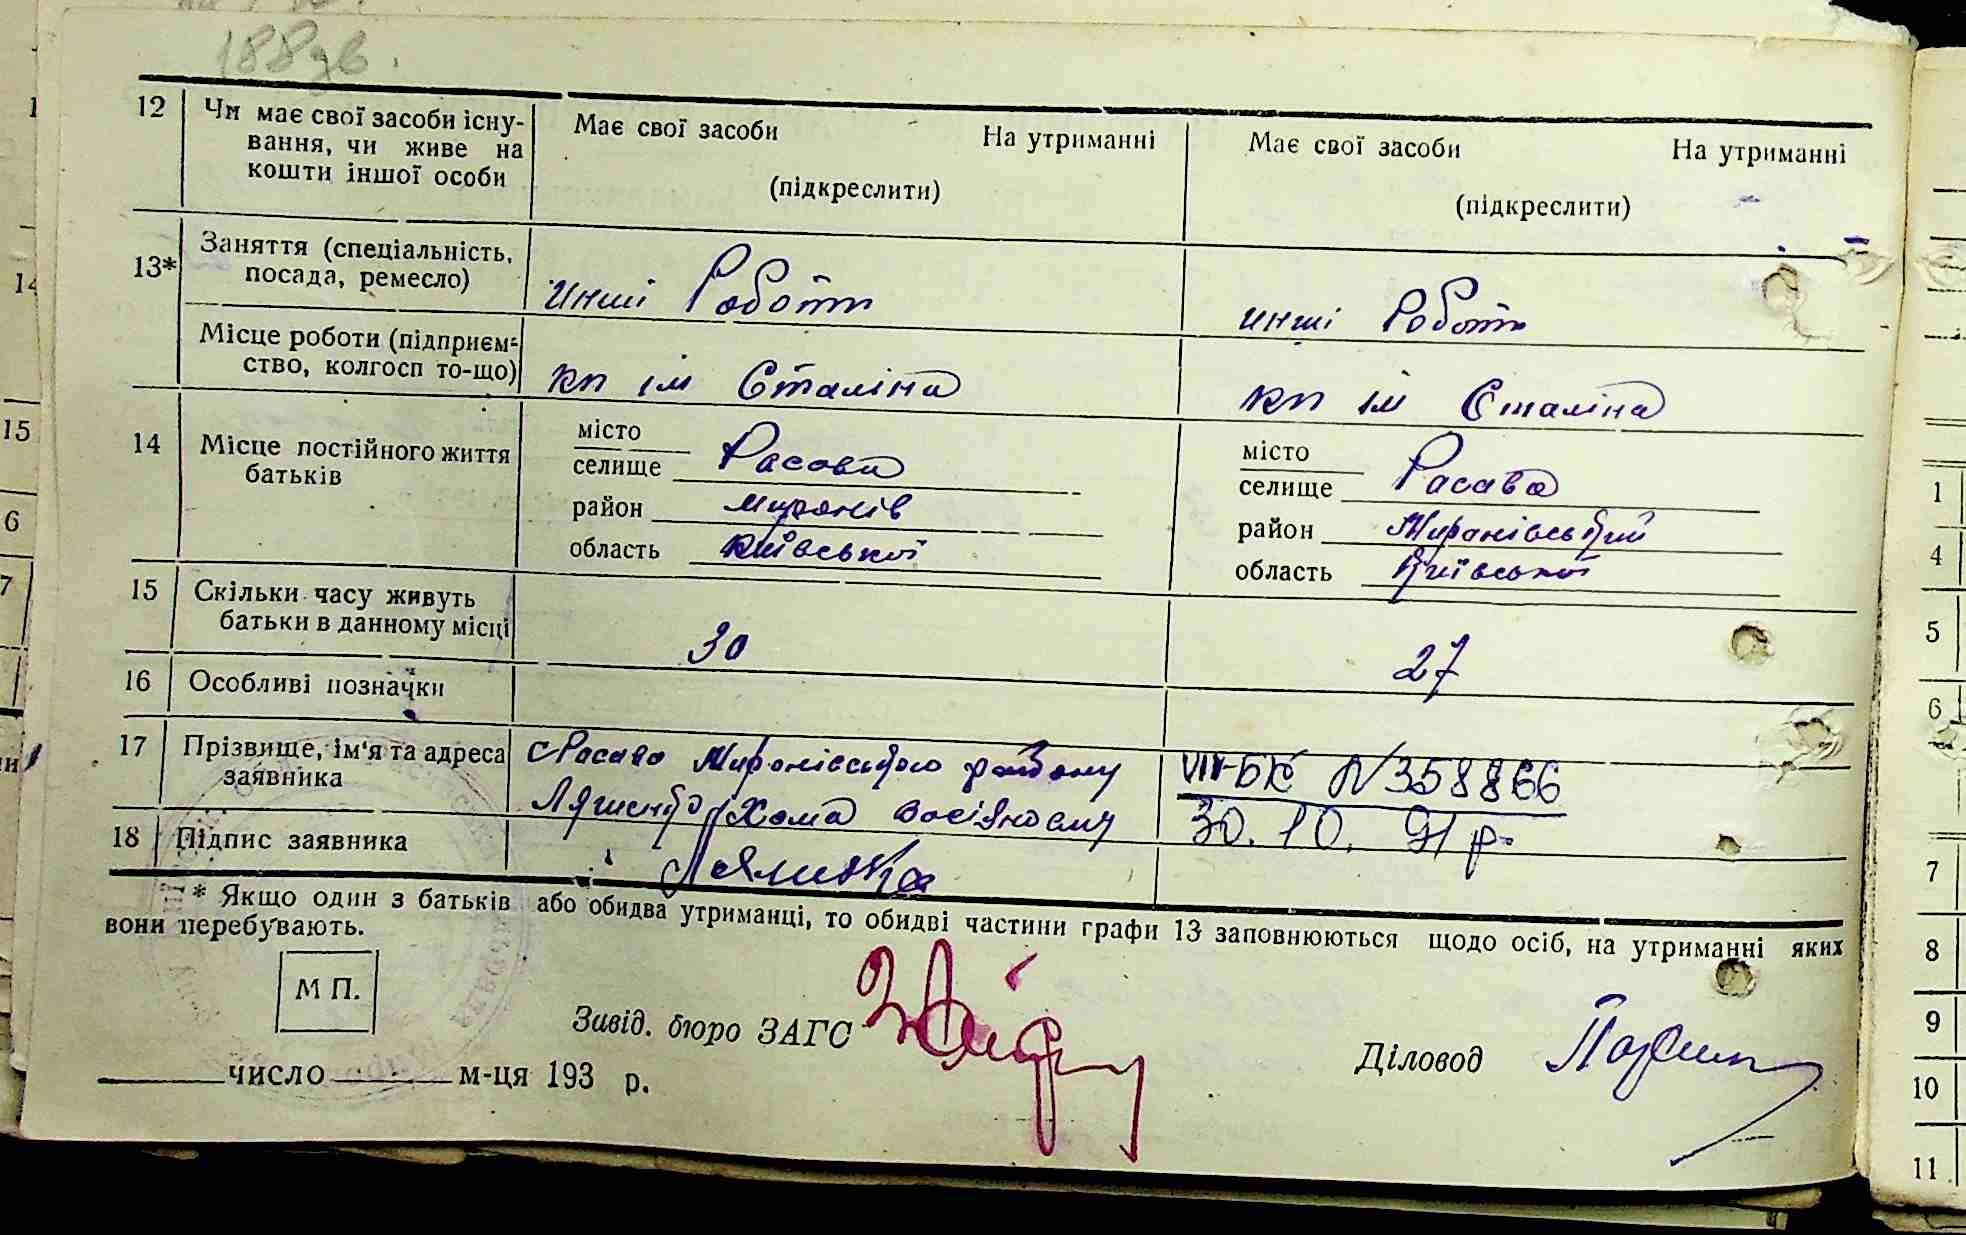 188 зв.
12 Чи має свої засоби існу- Має свої засоби На утриманні Має свої засоби На утриманні
вання, чи живе на
кошти іншої особи (підкреслити) (підкреслити)
13* Заняття (спеціальність,
посада, ремесло) инші Роботи инші Роботи
Місце роботи (підприєм-
ство, колгосп то-що) кп ім Сталіна кп ім Сталіна
14 Місце постійного життя місто місто
батьків селище Расова селище Расава
район миронів район Миронівський
область київської область Київської
15 Скільки часу живуть
батьки в данному місці 30 27
16 Особливі позначки
17 Прізвище, ім'я та адреса с Расава района VIII-БК N 358866
заявника Хома 30.10. 91 р.
18 Підпис заявника
* Якщо один з батьків або обидва утриманці, то обидві частини графи 13 заповнюються щодо осіб, на утриманні яких
вони перебувають.
М П.
Завід. бюро ЗАГС Діловод
число м-ця 193 р.
1
4
5
6
7
8
9
10
11
14
15
6
7